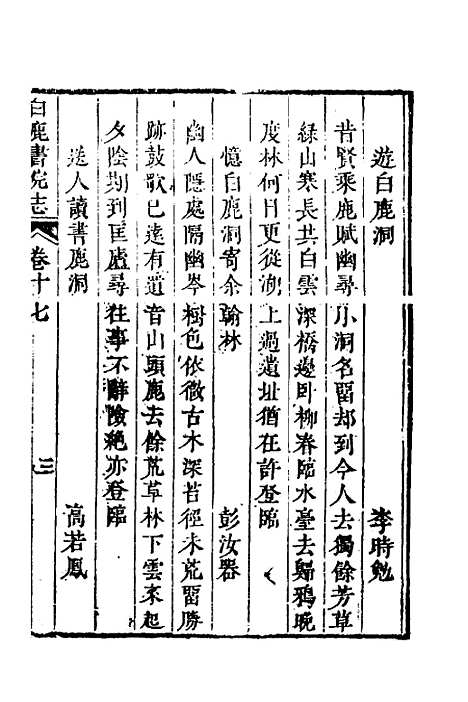 遊白鹿洞　李時勉
昔賢乘鹿賦幽尋小洞名畱却到今人去獨餘芳草
綠山寒長共白雲深橋邊卧柳春臨水臺去歸鴉晚
度林何日更從湖上過遺址猶在許登臨
憶白鹿洞寄余翰林　彭汝器
幽人隱處隔幽岑樹色依微古木深苔徑未荒畱勝
跡鼓歌已遠有遺音山頭鹿去餘荒草林下雲來起
夕陰期到匡廬尋往事不辭險絶亦登臨
送人讀書鹿洞　高若鳳
白鹿書院志
卷十七
三